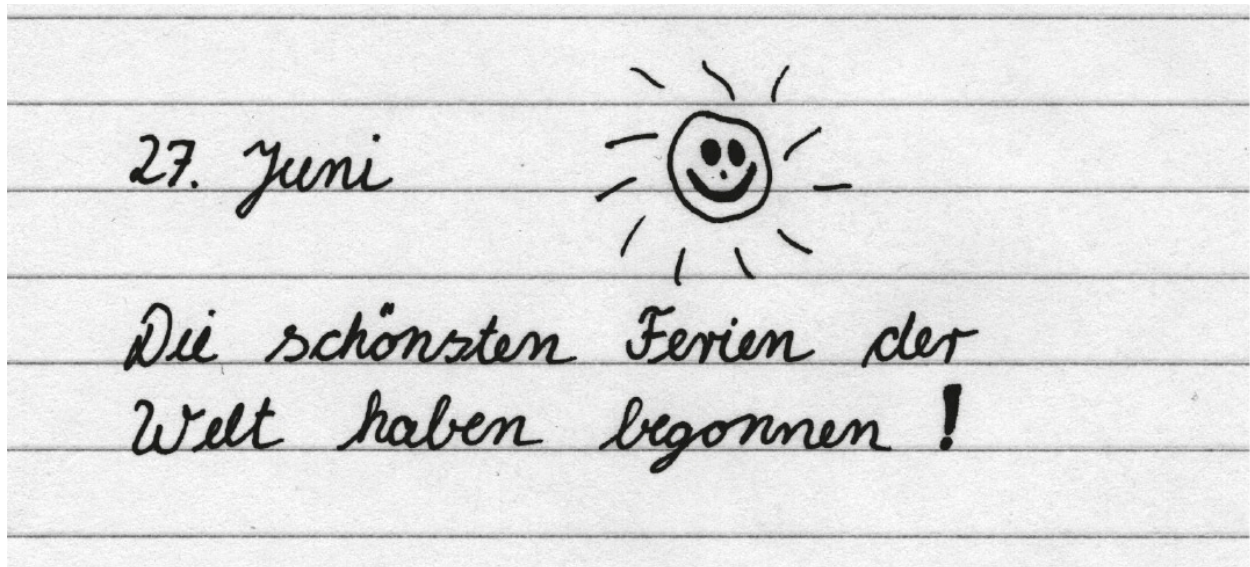 27. Juni
Die schönsten Ferien der
Welt haben begonnen !